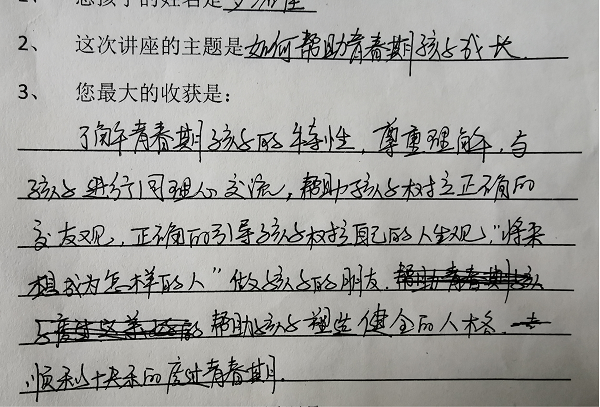 您孩子的姓名是
2、 这次讲座的主题是如何帮助青春期孩子成长.
3、 您最大的收获是：
了解青春期孩子的特性，尊重理解，与
孩子进行同理心交流，帮助孩子树立正确的
交友观，正确的引导孩子树立自己的人生观，“将来
想成为怎样的人”做孩子的朋友.
帮助孩子塑造健全的人格.
顺利快乐的度过青春期.